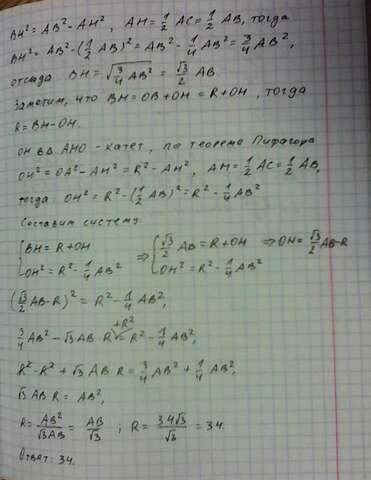 BH² = AB² - AH², AH = 1/2 AC = 1/2 AB, тогда
BH² = AB² - (1/2 AB)² = AB² - 1/4 AB² = 3/4 AB²,
отсюда BH = √(3/4 AB²) = √3/2 AB.
Заметим, что BH = OB + OH = R + OH, тогда
R = BH - OH.
OH в Δ AHO - катет, по теореме Пифагора
OH² = OA² - AH² = R² - AH², AH = 1/2 AC = 1/2 AB,
тогда OH² = R² - (1/2 AB)² = R² - 1/4 AB²
Составим систему:
{ BH = R + OH ⇒ { √3/2 AB = R + OH ⇒ OH = √3/2 AB - R
{ OH² = R² - 1/4 AB² { OH² = R² - 1/4 AB²
(√3/2 AB - R)² = R² - 1/4 AB²,
3/4 AB² - √3 AB · R + R² = R² - 1/4 AB²,
R² - R² + √3 AB · R = 3/4 AB² + 1/4 AB²,
√3 AB · R = AB²,
R = AB²/√3AB = AB/√3 ; R = 34√3/√3 = 34.
Ответ: 34.